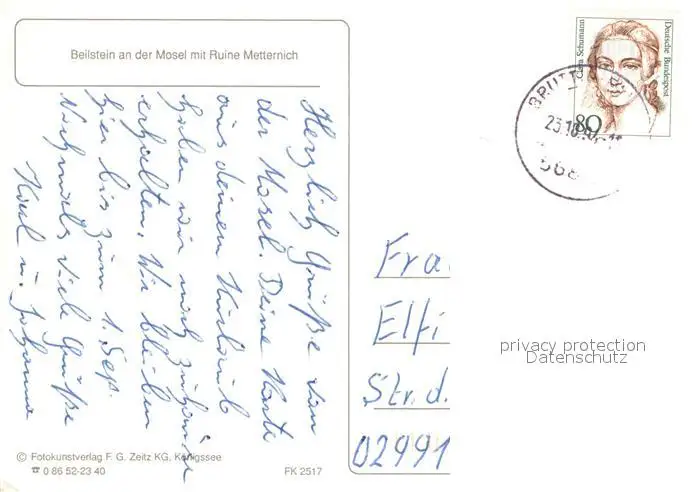 Beilstein an der Mosel mit Ruine Metternich
Herzlich Grüße von
der Mosel. Deine Karte
aus deinen Kurlaub
haben wir noch zuhause
erhalten. Wir bleiben
hier bis zum 1. Sep.
Nochmals viele Grüße
Karl u. Johanna
© Fotokunstverlag F. G. Zeitz KG, Königssee
☎ 0 86 52-23 40
FK 2517
Clara Schumann
Deutsche Bundespost
80
BRUTT
23.10.
568
Fra
Elfi
Str. d.
02991
privacy protection
Datenschutz